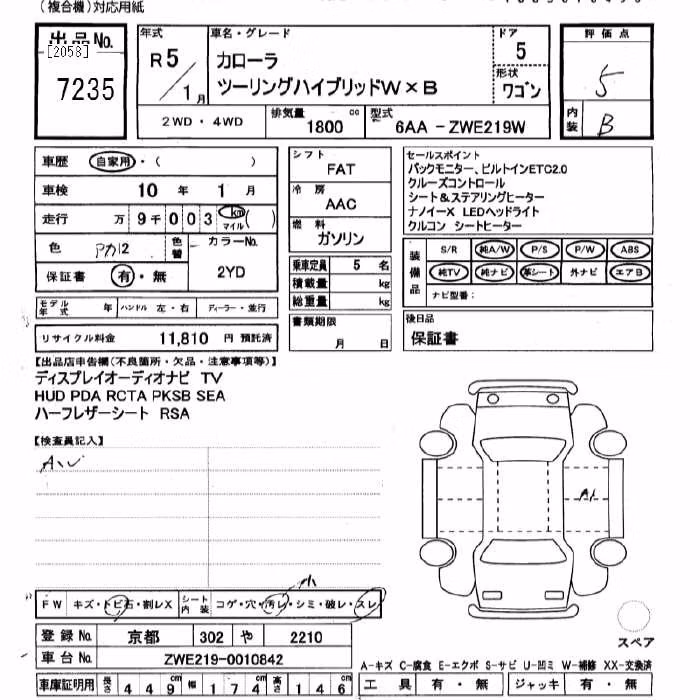 (複合機)対応用紙
出品No.
[2058]
7235
年式
R5/1月
車名・グレード
カローラ
ツーリングハイブリッドW×B
ドア
5
形状
ワゴン
評価点
5
内装
B
2WD・4WD
排気量
1800 cc
型式
6AA-ZWE219W
車歴
自家用・( )
車検
10年1月
走行
万9千003km
マイル( )
色
色替
カラーNo.
2YD
保証書
有・無
モデル年式 年
ハンドル 左・右
ディーラー・並行
リサイクル料金
11,810円預託済
シフト
FAT
冷房
AAC
燃料
ガソリン
乗車定員 5名
積載量 kg
総重量 kg
書類期限
月 日
セールスポイント
バックモニター、ビルトインETC2.0
クルーズコントロール
シート&ステアリングヒーター
ナノイーX LEDヘッドライト
クルコン シートヒーター
装備品
S/R 純A/W P/S P/W ABS
純TV 純ナビ 革シート 外ナビ エアB
ナビ型番:
後日品
保証書
【出品店申告欄(不良箇所・欠品・注意事項等)】
ディスプレイオーディオナビ TV
HUD PDA RCTA PKSB SEA
ハーフレザーシート RSA
【検査員記入】
A1
FW
キズ・トビ石・割レX
シート内装
コゲ・穴・汚レ・シミ・破レ・スレ
小
登録No.
京都 302 や 2210
車台No.
ZWE219-0010842
車庫証明用
長さ 449cm 幅 174cm 高さ 146cm
スペア
A-キズ C-腐食 E-エクボ S-サビ U-凹ミ W-補修 XX-交換済
工具 有・無 ジャッキ 有・無